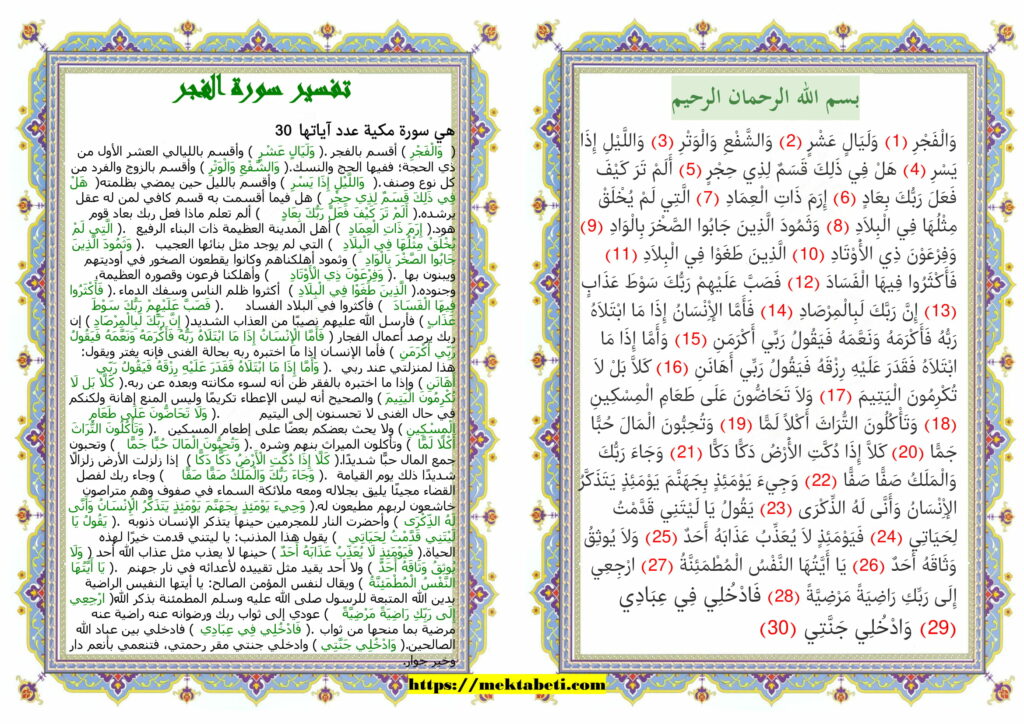 بسم الله الرحمان الرحيم
وَالْفَجْرِ (1) وَلَيَالٍ عَشْرٍ (2) وَالشَّفْعِ وَالْوَتْرِ (3) وَاللَّيْلِ إِذَا
يَسْرِ (4) هَلْ فِي ذَلِكَ قَسَمٌ لِذِي حِجْرٍ (5) أَلَمْ تَرَ كَيْفَ
فَعَلَ رَبُّكَ بِعَادٍ (6) إِرَمَ ذَاتِ الْعِمَادِ (7) الَّتِي لَمْ يُخْلَقْ
مِثْلُهَا فِي الْبِلاَدِ (8) وَثَمُودَ الَّذِينَ جَابُوا الصَّخْرَ بِالْوَادِ (9)
وَفِرْعَوْنَ ذِي الأَوْتَادِ (10) الَّذِينَ طَغَوْا فِي الْبِلاَدِ (11)
فَأَكْثَرُوا فِيهَا الْفَسَادَ (12) فَصَبَّ عَلَيْهِمْ رَبُّكَ سَوْطَ عَذَابٍ
(13) إِنَّ رَبَّكَ لَبِالْمِرْصَادِ (14) فَأَمَّا الإِنْسَانُ إِذَا مَا ابْتَلاَهُ
رَبُّهُ فَأَكْرَمَهُ وَنَعَّمَهُ فَيَقُولُ رَبِّي أَكْرَمَنِ (15) وَأَمَّا إِذَا مَا
ابْتَلاَهُ فَقَدَرَ عَلَيْهِ رِزْقَهُ فَيَقُولُ رَبِّي أَهَانَنِ (16) كَلاَّ بَلْ لاَ
تُكْرِمُونَ الْيَتِيمَ (17) وَلاَ تَحَاضُّونَ عَلَى طَعَامِ الْمِسْكِينِ
(18) وَتَأْكُلُونَ التُّرَاثَ أَكْلاً لَمًّا (19) وَتُحِبُّونَ الْمَالَ حُبًّا
جَمًّا (20) كَلاَّ إِذَا دُكَّتِ الأَرْضُ دَكًّا دَكًّا (21) وَجَاءَ رَبُّكَ
وَالْمَلَكُ صَفًّا صَفًّا (22) وَجِيءَ يَوْمَئِذٍ بِجَهَنَّمَ يَوْمَئِذٍ يَتَذَكَّرُ
الإِنْسَانُ وَأَنَّى لَهُ الذِّكْرَى (23) يَقُولُ يَا لَيْتَنِي قَدَّمْتُ
لِحَيَاتِي (24) فَيَوْمَئِذٍ لاَ يُعَذِّبُ عَذَابَهُ أَحَدٌ (25) وَلاَ يُوثِقُ
وَثَاقَهُ أَحَدٌ (26) يَا أَيَّتُهَا النَّفْسُ الْمُطْمَئِنَّةُ (27) ارْجِعِي
إِلَى رَبِّكِ رَاضِيَةً مَرْضِيَّةً (28) فَادْخُلِي فِي عِبَادِي
(29) وَادْخُلِي جَنَّتِي (30)
تفسير سورة الفجر
هي سورة مكية عدد آياتها 30
( وَالْفَجْرِ ) أقسم بالفجر .( وَلَيَالٍ عَشْرٍ ) وأقسم بالليالي العشر الأول من
ذي الحجة؛ ففيها الحج والنسك.( وَالشَّفْعِ وَالْوَتْرِ ) وأقسم بالزوج والفرد من
كل نوع وصنف.( وَاللَّيْلِ إِذَا يَسْرِ ) وأقسم بالليل حين يمضي بظلمته( هَلْ
فِي ذَلِكَ قَسَمٌ لِذِي حِجْرٍ ) هل فيما أقسمت به قسم كافي لمن له عقل
يرشده.( أَلَمْ تَرَ كَيْفَ فَعَلَ رَبُّكَ بِعَادٍ ) ألم تعلم ماذا فعل ربك بعاد قوم
هود.( إِرَمَ ذَاتِ الْعِمَادِ ) أهل المدينة العظيمة ذات البناء الرفيع .( الَّتِي لَمْ
يُخْلَقْ مِثْلُهَا فِي الْبِلاَدِ ) التي لم يوجد مثل بنائها العجيب .( وَثَمُودَ الَّذِينَ
جَابُوا الصَّخْرَ بِالْوَادِ ) وثمود أهلكناهم وكانوا يقطعون الصخور في أوديتهم
ويبنون بها .( وَفِرْعَوْنَ ذِي الأَوْتَادِ ) وأهلكنا فرعون وقصوره العظيمة،
وجنوده.( الَّذِينَ طَغَوْا فِي الْبِلاَدِ ) أكثروا ظلم الناس وسفك الدماء .( فَأَكْثَرُوا
فِيهَا الْفَسَادَ ) فأكثروا في البلاد الفساد .( فَصَبَّ عَلَيْهِمْ رَبُّكَ سَوْطَ
عَذَابٍ ) فأرسل الله عليهم نصيبًا من العذاب الشديد( إِنَّ رَبَّكَ لَبِالْمِرْصَادِ ) إن
ربك يرصد أعمال الفجار ( فَأَمَّا الْإِنْسَانُ إِذَا مَا ابْتَلاَهُ رَبُّهُ فَأَكْرَمَهُ وَنَعَّمَهُ فَيَقُولُ
رَبِّي أَكْرَمَنِ ) فأما الإنسان إذا ما اختبره ربه بحالة الغنى فإنه يغتر ويقول:
هذا لمنزلتي عند ربي .( وَأَمَّا إِذَا مَا ابْتَلاَهُ فَقَدَرَ عَلَيْهِ رِزْقَهُ فَيَقُولُ رَبِّي
أَهَانَنِ ) وإذا ما اختبره بالفقر ظن أنه لسوء مكانته وبعده عن ربه.( كَلاَّ بَل لاَ
تُكْرِمُونَ الْيَتِيمَ ) والصحيح أنه ليس الإعطاء تكريمًا وليس المنع إهانة ولكنكم
في حال الغنى لا تحسنون إلى اليتيم .( وَلاَ تَحَاضُّونَ عَلَى طَعَامِ
الْمِسْكِينِ ) ولا يحث بعضكم بعضًا على إطعام المسكين .( وَتَأْكُلُونَ التُّرَاثَ
أَكْلًا لَمًّا ) وتأكلون الميراث بنهم وشره .( وَتُحِبُّونَ الْمَالَ حُبًّا جَمًّا ) وتحبون
جمع المال حبًّا شديدًا.( كَلَّا إِذَا دُكَّتِ الْأَرْضُ دَكًّا دَكًّا ) إذا زلزلت الأرض زلزالًا
شديدًا ذلك يوم القيامة .( وَجَاءَ رَبُّكَ وَالْمَلَكُ صَفًّا صَفًّا ) وجاء ربك لفصل
القضاء مجيئًا يليق بجلاله ومعه ملائكة السماء في صفوف وهم متراصون
خاشعون لربهم مطيعون له.( وَجِيءَ يَوْمَئِذٍ بِجَهَنَّمَ يَوْمَئِذٍ يَتَذَكَّرُ الْإِنْسَانُ وَأَنَّى
لَهُ الذِّكْرَى ) وأحضرت النار للمجرمين حينها يتذكر الإنسان ذنوبة .( يَقُولُ يَا
لَيْتَنِي قَدَّمْتُ لِحَيَاتِي ) يقول هذا المذنب: يا ليتني قدمت خيرًا لهذه
الحياة.( فَيَوْمَئِذٍ لاَ يُعَذِّبُ عَذَابَهُ أَحَدٌ ) حينها لا يعذب مثل عذاب الله أحد ( وَلَا
يُوثِقُ وَثَاقَهُ أَحَدٌ ) ولا أحد يقيد مثل تقييده لأعدائه في نار جهنم .( يَا أَيَّتُهَا
النَّفْسُ الْمُطْمَئِنَّةُ ) ويقال لنفس المؤمن الصالح: يا أيتها النفيس الراضية
بدين الله المتبعة للرسول صلى الله عليه وسلم المطمئنة بذكر الله( ارْجِعِي
إِلَى رَبِّكِ رَاضِيَةً مَرْضِيَّةً ) عودي إلى ثواب ربك ورضوانه عنه راضية عنه
مرضية بما منحها من ثواب .( فَادْخُلِي فِي عِبَادِي ) فادخلي بين عباد الله
الصالحين.( وَادْخُلِي جَنَّتِي ) وادخلي جنتي مقر رحمتي، فتنعمي بأنعم دار
وخير جوار.
https://mektabeti.com